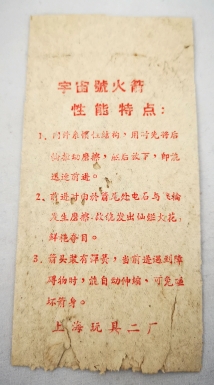 宇宙號火箭
性能特点：
1、附外系慣性結构，用时先将后
轮推动磨擦，然后放下，即能
迅速前进。
2、前进时由於箭尾处电石与飞輪
发生磨擦，故能发出仙繼火花，
鲜艳夺目。
3、箭头装有弹簧，当前进遇到障
碍物时，能自动伸缩，可免碰
坏箭身。
上海玩具二厂